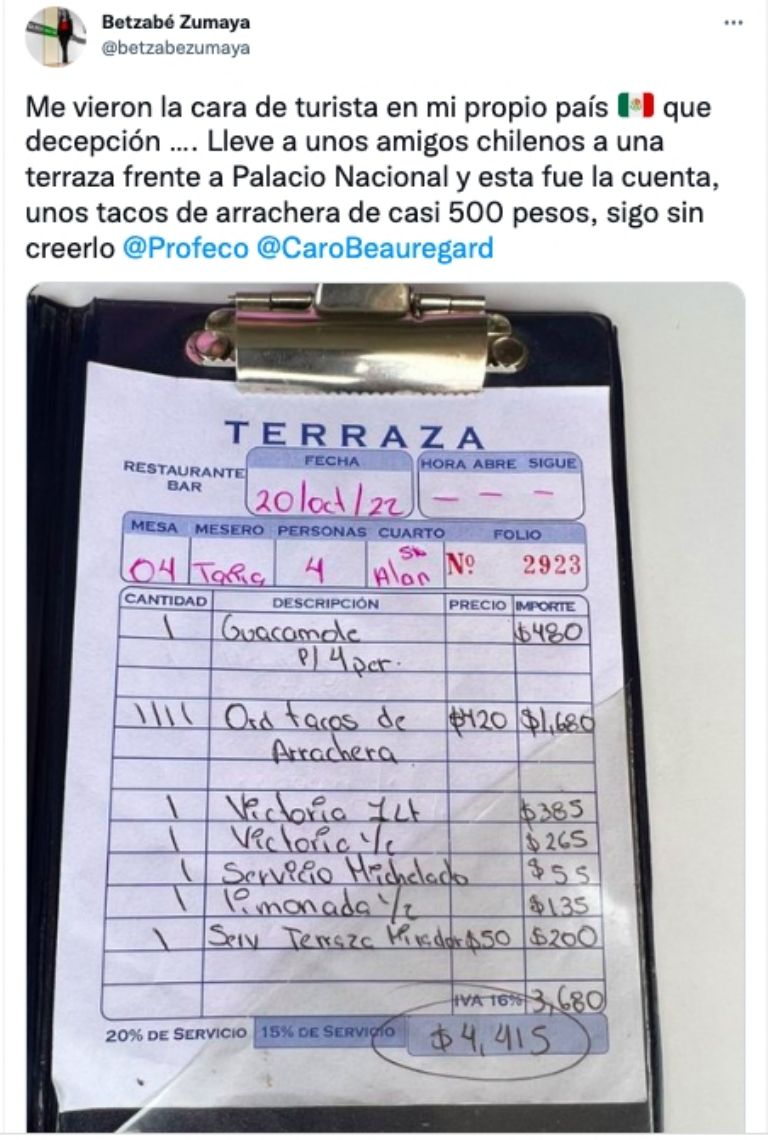 Betzabé Zumaya
@betzabezumaya
Me vieron la cara de turista en mi propio país 🇲🇽 que
decepción .... Lleve a unos amigos chilenos a una
terraza frente a Palacio Nacional y esta fue la cuenta,
unos tacos de arrachera de casi 500 pesos, sigo sin
creerlo @Profeco @CaroBeauregard
TERRAZA
RESTAURANTE
BAR
FECHA
20/oct/22
HORA ABRE SIGUE
— — —
MESA MESERO PERSONAS CUARTO FOLIO
04 Tania 4 Sn Alan Nº 2923
CANTIDAD DESCRIPCIÓN PRECIO IMPORTE
1 Guacamole $480
P/ 4 per.
1111 Ord tacos de $420 $1,680
Arrachera
1 Victoria 1Lt $385
1 Victoria $265
1 Servicio Michelado $55
1 Limonada 1/2 $135
1 Serv Terraza Mirador $50 $200
IVA 16% 3,680
20% DE SERVICIO 15% DE SERVICIO $4,415